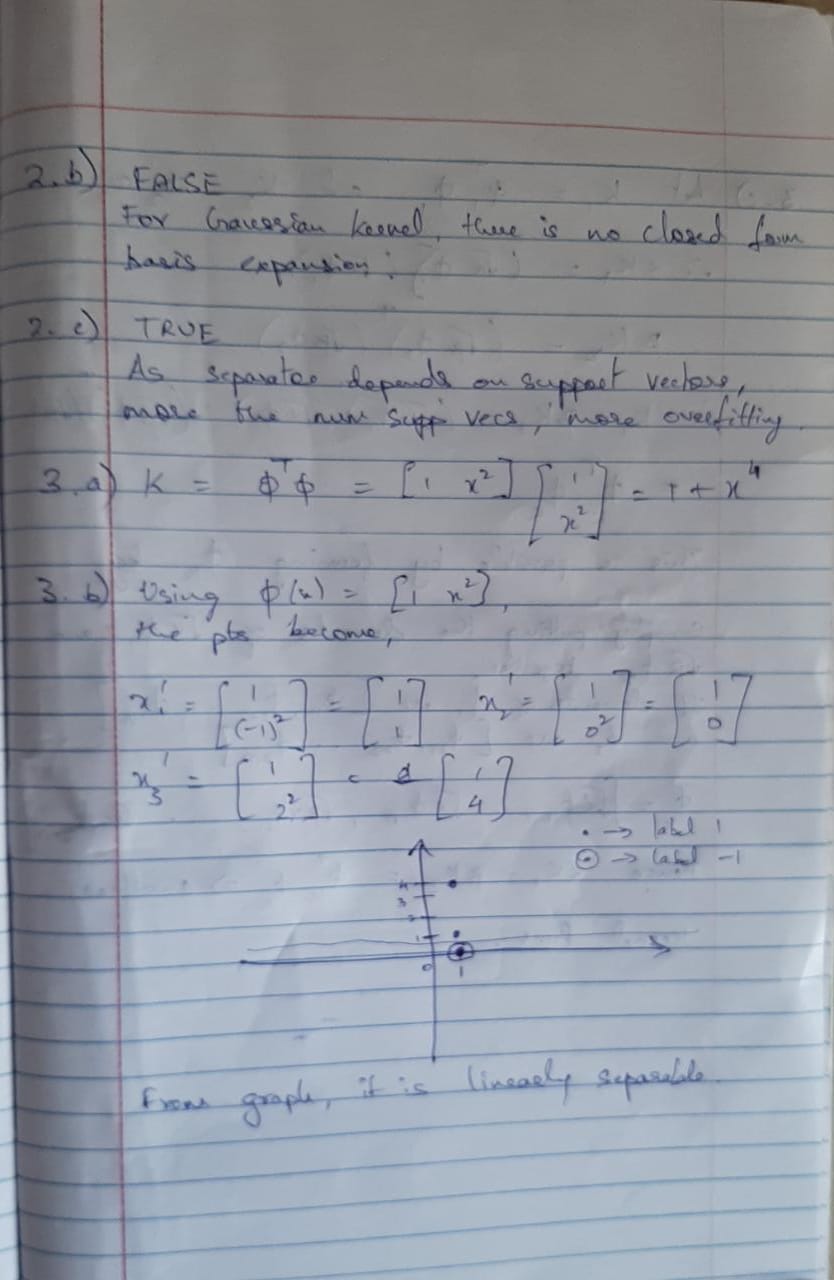 2.b) FALSE
For Gaussian kernel, there is no closed form
basis expansion.
2.c) TRUE
As separator depends on support vectors,
more the num supp vecs, more overfitting.
3.a) K = ϕ^T ϕ = [1 x²] [1 x²] = 1 + x⁴
3.b) Using ϕ(x) = [1 x²],
the pts become,
x₁' = [1 (-1)²] = [1 1] x₂' = [1 0²] = [1 0]
x₃' = [1 2²] = [1 4]
• → label 1
⊙ → label -1
4
3
2
1
0 1
From graph, it is linearly separable.